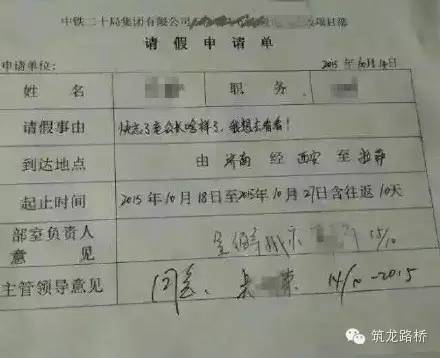 中铁二十局集团有限公司 改项目部
请假申请单
申请单位: 2015年10月14日
姓名 职务
请假事由 快忘了老公长啥样了,我想去看看!
到达地点 由 济南 经 西安 至
起止时间 2015年10月18日至2015年10月27日含往返10天
部室负责人
意见 15/10
主管领导意见 同意、 14/10-2015
筑龙路桥